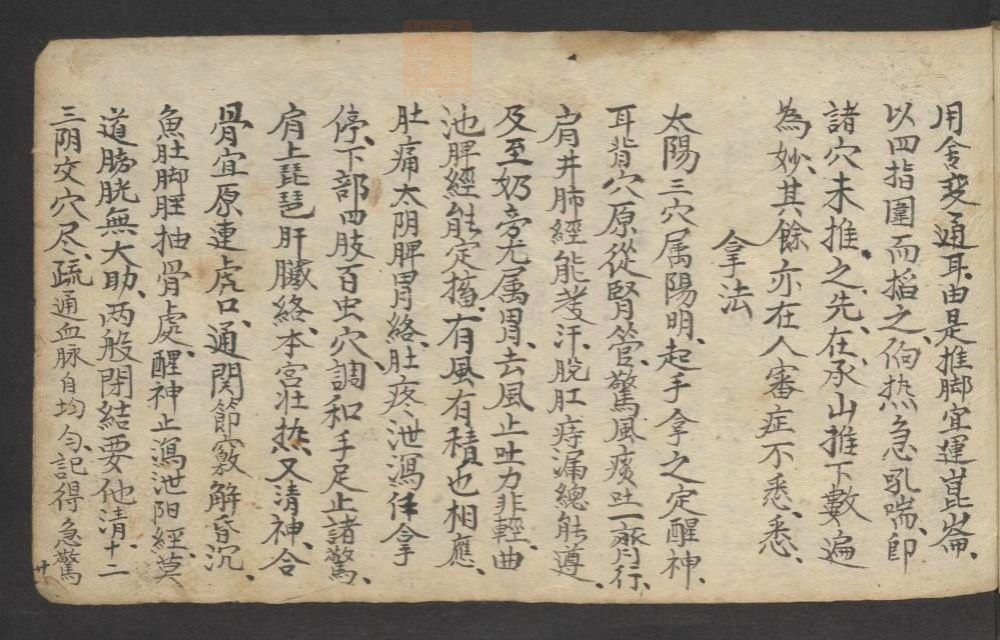 用令变通耳由是推脚宜運崑崙、
以四指圍而搯之、伺热急吼喘、即
諸穴未推之先、在承山推下數遍
為妙、其餘亦在人審症不悉、悉、
拿法
太陽三穴属陽明、起手拿之定醒神、
耳背穴原從腎管、驚風痰吐一齊行、
肩井肺經能發汗、脱肛痔漏總能遵、
及至奶旁尤属胃、去風止吐力非輕、曲
池脾經能定搐、有風有積也相應、
肚痛太阴脾胃絡、肚疼泄瀉任拿
停、下部四肢百虫穴、調和手足止諸驚、
肩上琵琶肝臟絡、本宫壮热又清神、合
骨宜原連虎口、通関節竅解昏沉、
魚肚脚脛抽骨處、醒神止瀉泄阳經、莫
道膀胱無大助、两般閉結要他清、十二
三阴交穴尽、疏通血脉自均匀、記得急驚
廿